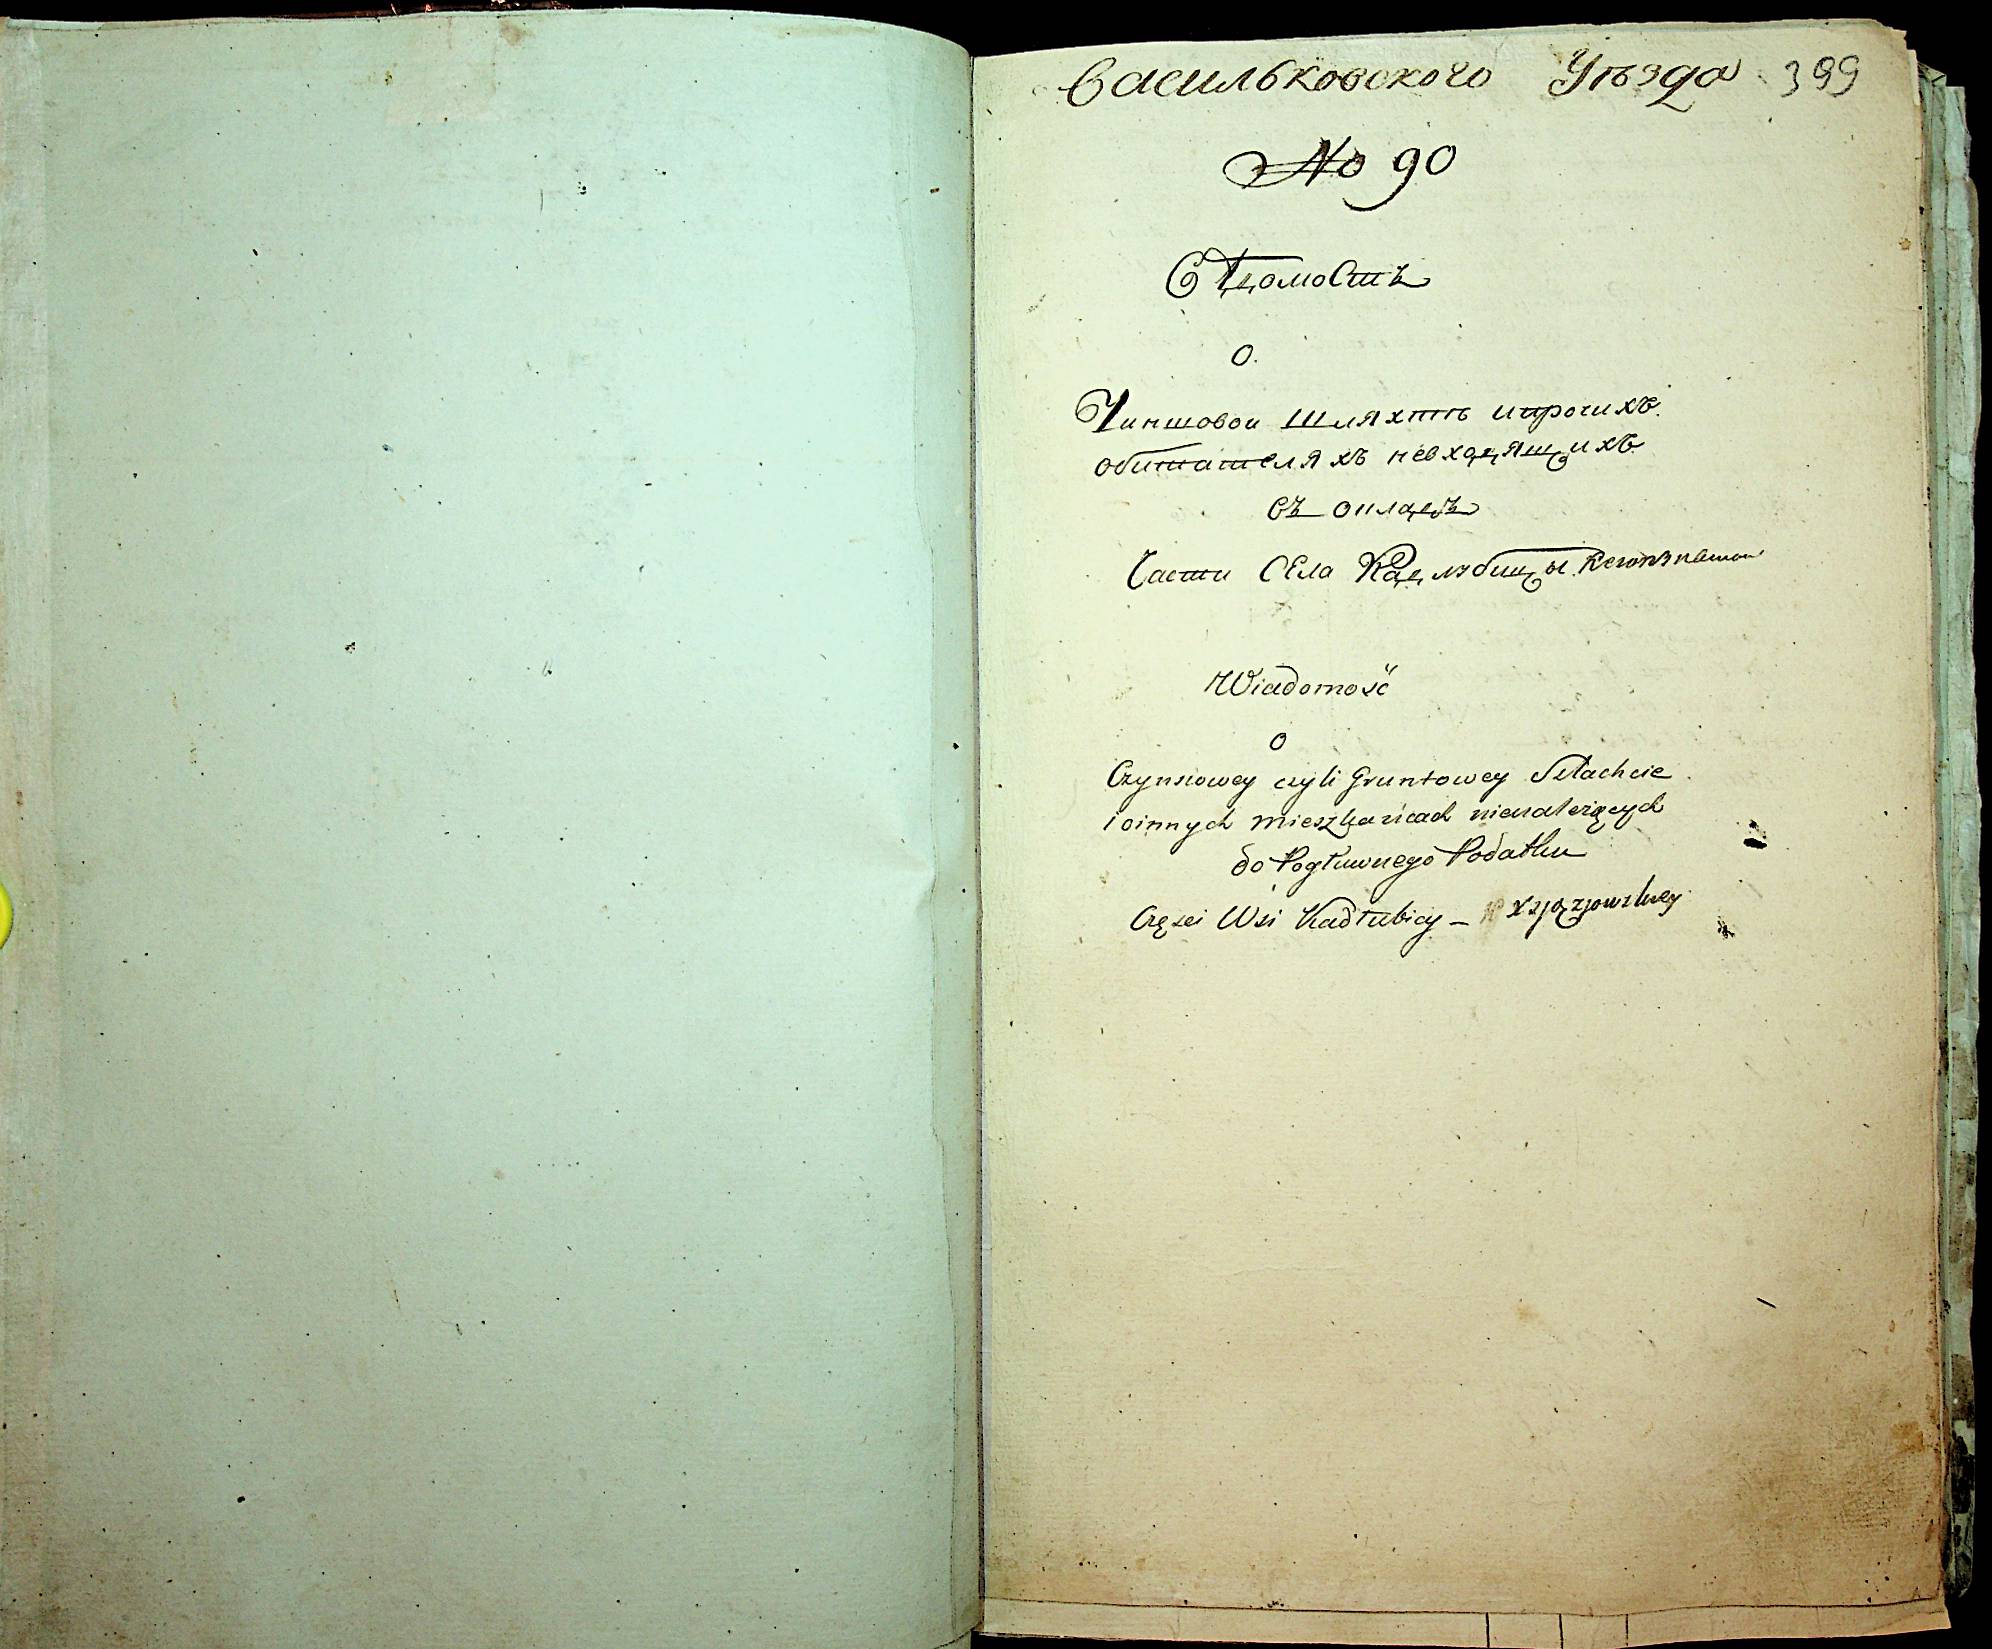 Васильковского Уѣзда 399
No 90
Вѣдомость
О.
Чиншовои Шляхтѣ ипрочихъ
обитателяхъ невходящихъ
въ окладъ
Части Села Кадлубицы
Wiadomość
o
Czynszowey czyli Gruntowey Szlachcie
i oinnych mieszkańcach nienależących
do Pogłuwnego Podatku
Części Wsi Kadłubicy –